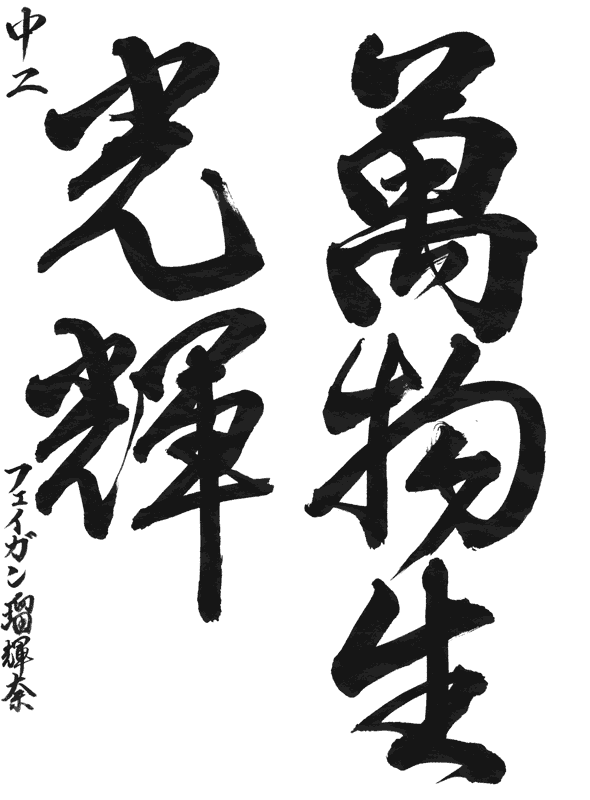 萬物生
光輝
中二
フェイガン瑠輝奈